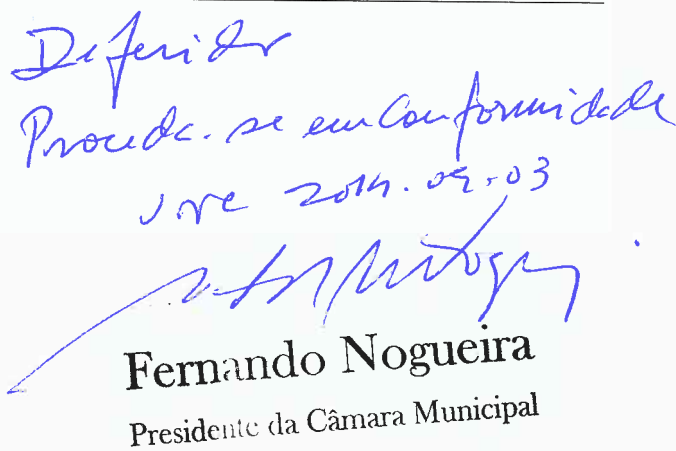 Deferido
Proceda-se em conformidade
VNC 2014.09.03
Fernando Nogueira
Presidente da Câmara Municipal